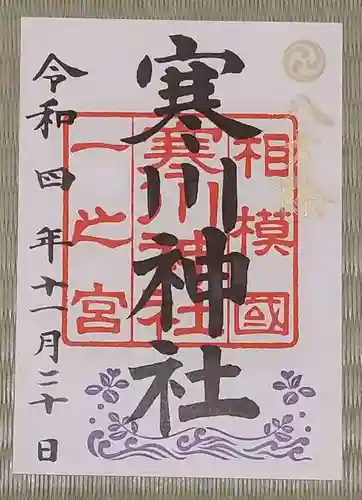 八方除
相模國
寒川神社
一之宮
寒川神社
令和四年十一月二十日